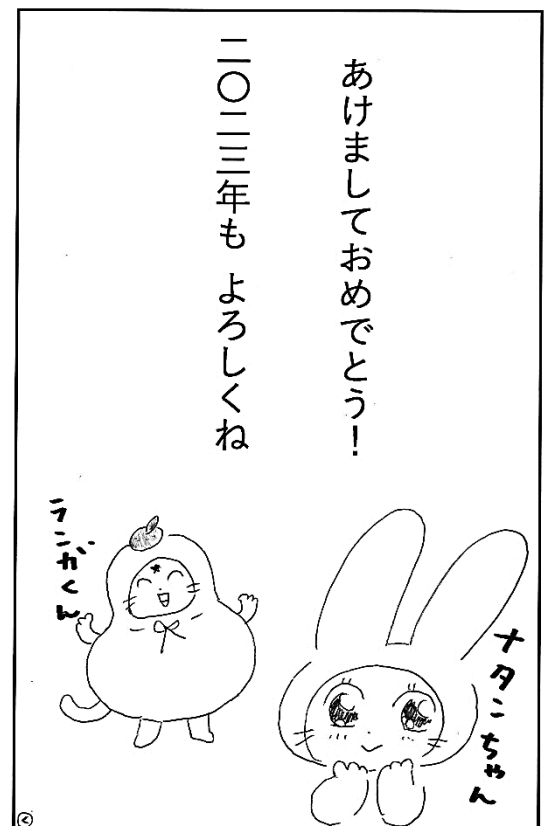 あけましておめでとう！
二〇二三年も よろしくね
ランガくん
ナタンちゃん